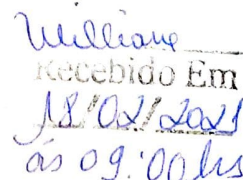 Williane
Recebido Em
18/02/2021
às 09:00hs